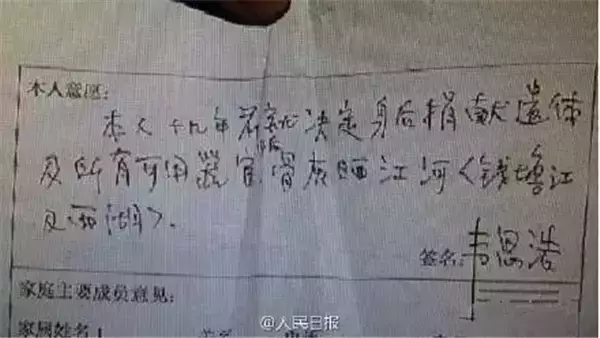 本人意愿:
本人十几年前就决定身后捐献遗体
及所有可用器官骨灰晒江河<钱塘江
及西湖>.
签名:韦思浩
家庭主要成员意见:
家属姓名
@人民日报